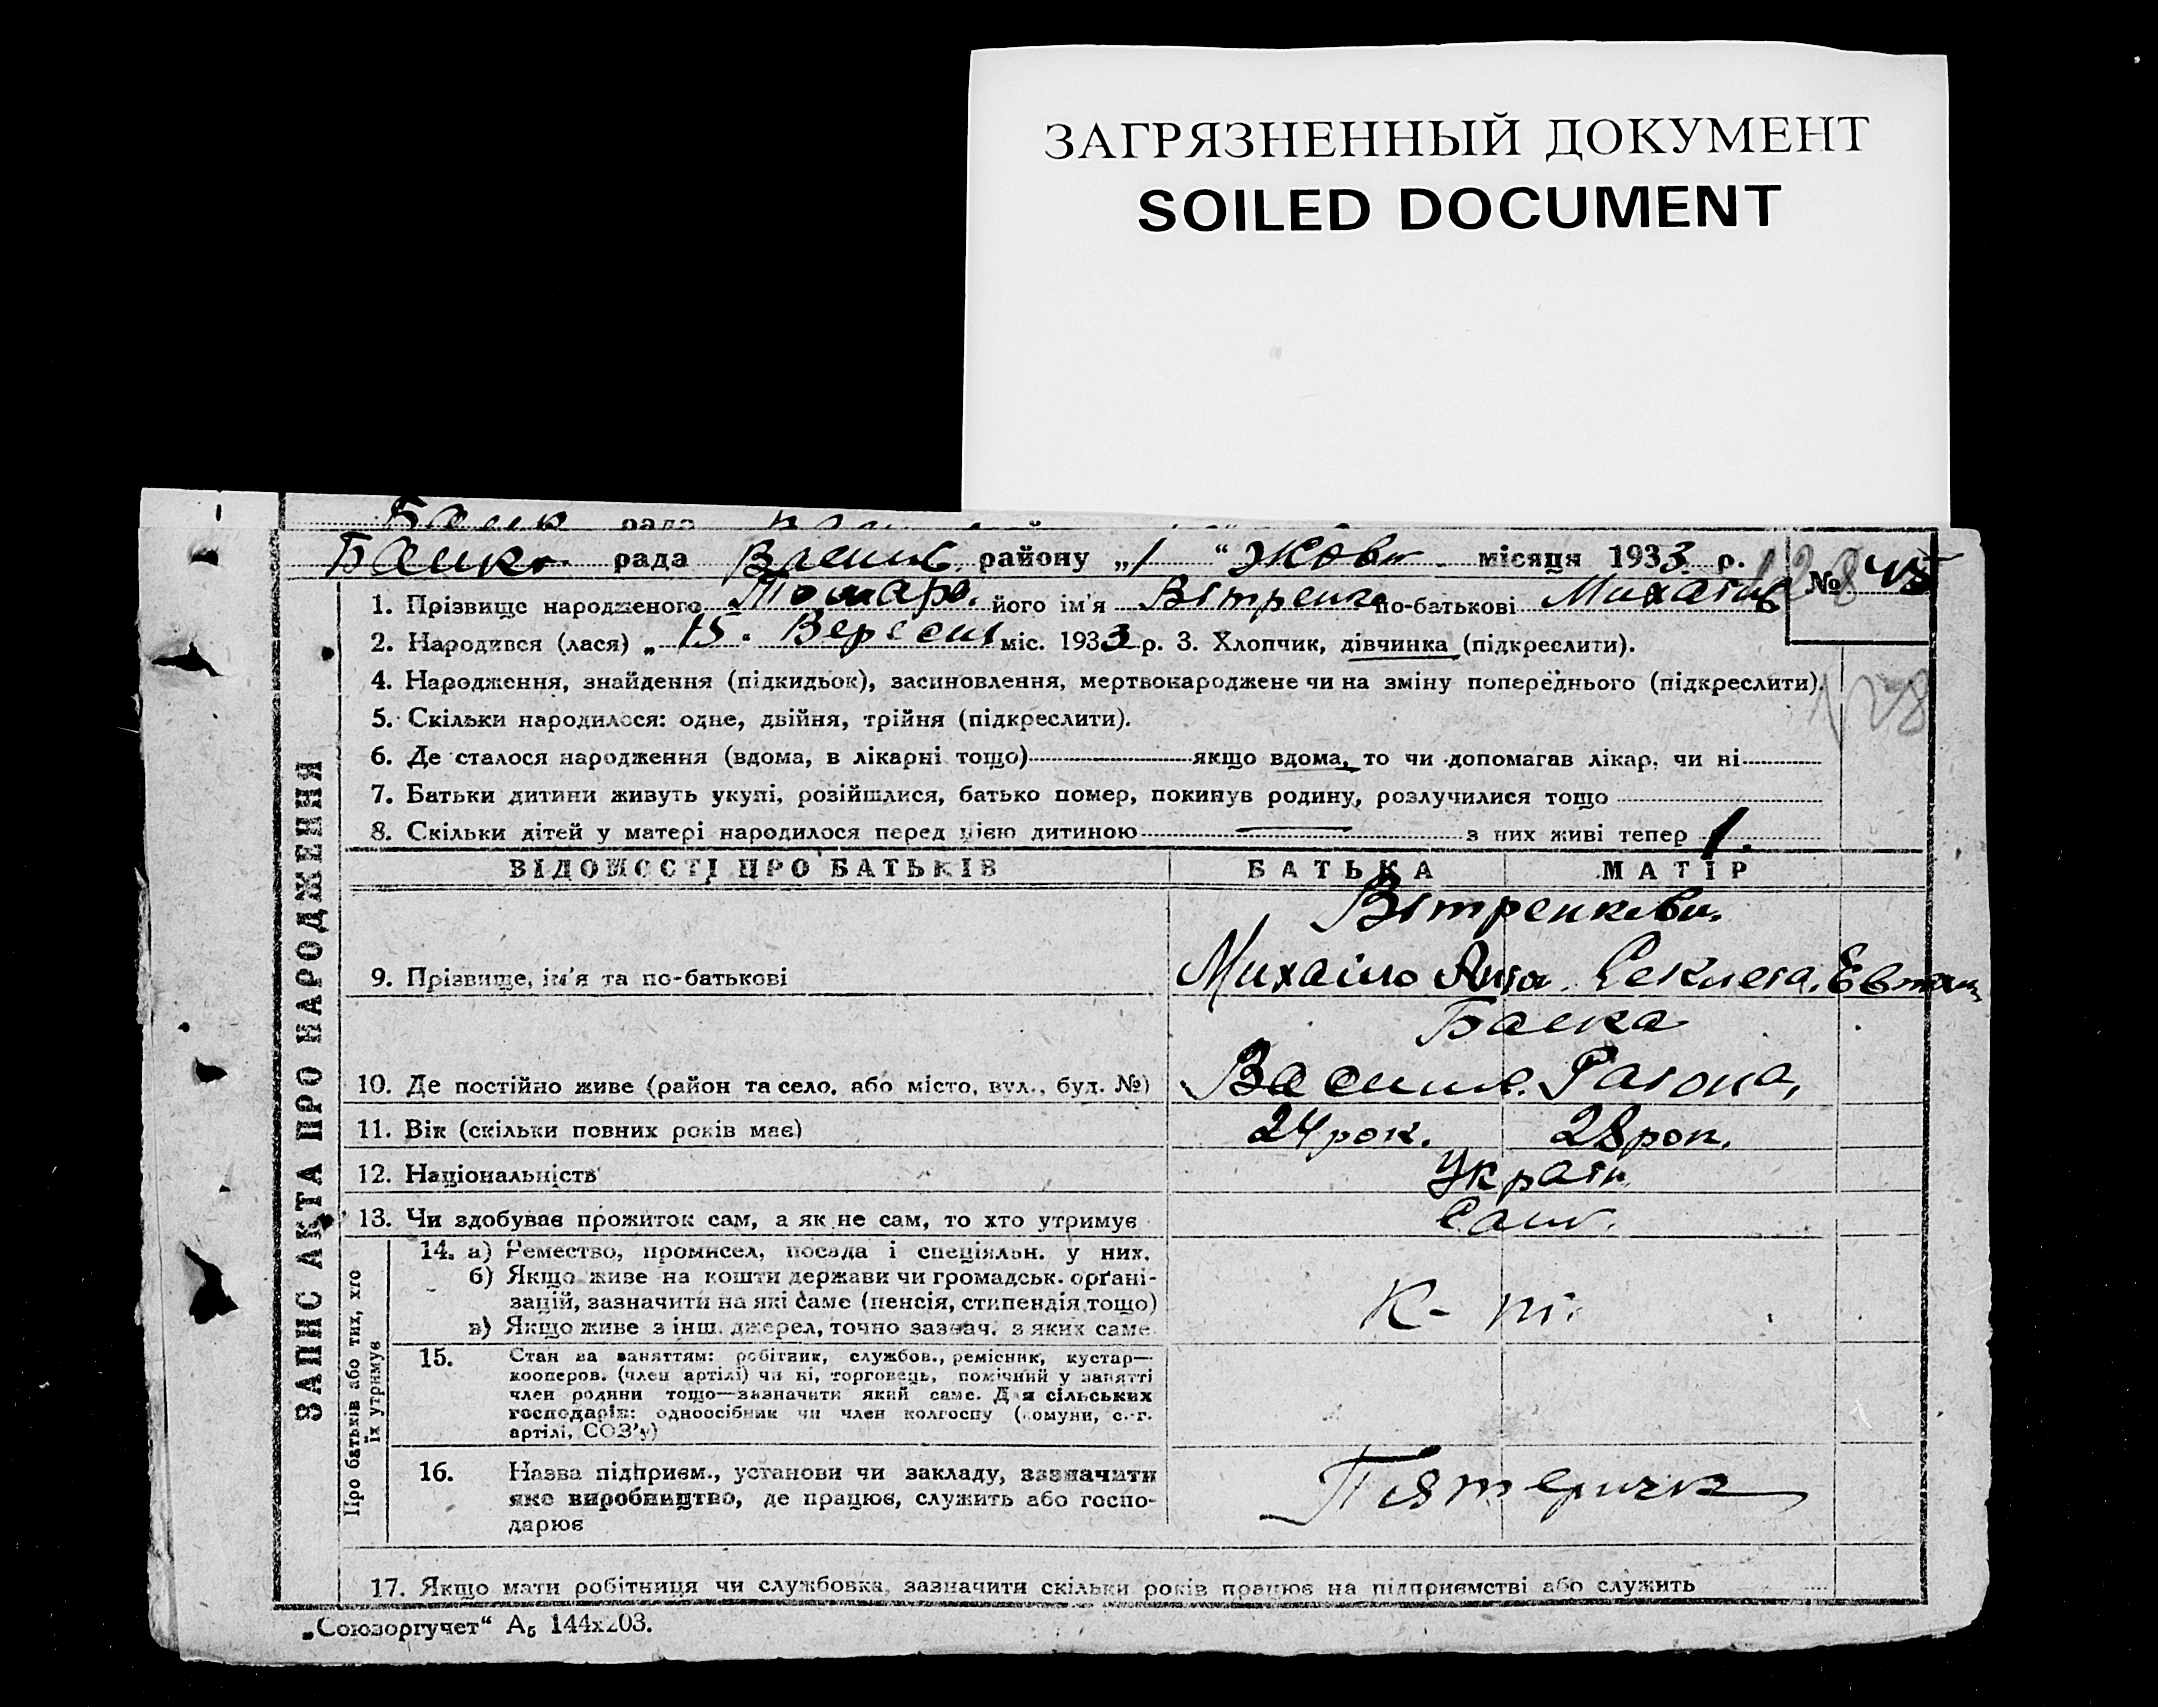 ЗАГРЯЗНЕННЫЙ ДОКУМЕНТ
SOILED DOCUMENT
рада
рада району „1“ Жовт. місяця 1933 р.
№ 45
1. Прізвище народженого Томара. його ім'я Вітренко по-батькові
2. Народився (лася) „ 15. Вересня міс. 1933 р. 3. Хлопчик, дівчинка (підкреслити).
4. Народження, знайдення (підкидьок), засиновлення, мертвонароджене чи на зміну попереднього (підкреслити).
128
5. Скільки народилося: одне, двійня, трійня (підкреслити).
6. Де сталося народження (вдома, в лікарні тощо) якщо вдома, то чи допомагав лікар, чи ні
7. Батьки дитини живуть укупі, розійшлися, батько помер, покинув родину, розлучилися тощо
8. Скільки дітей у матері народилося перед цією дитиною — з них живі тепер 1.
ЗАПИС АКТА ПРО НАРОДЖЕННЯ
ВІДОМОСТІ ПРО БАТЬКІВ БАТЬКА МАТІР
9. Прізвище, ім'я та по-батькові Михаіло
10. Де постійно живе (район та село, або місто, вул., буд. №)
11. Вік (скільки повних років має) 24 рок. 28 рок.
12. Національність Украін
13. Чи здобуває прожиток сам, а як не сам, то хто утримує Сам.
Про батьків або тих, хто
їх утримує
14. а) Ремество, промисел, посада і спеціяльн. у них.
б) Якщо живе на кошти держави чи громадськ. орґані-
зацій, зазначити на які саме (пенсія, стипендія тощо)
в) Якщо живе з інш. джерел, точно зазнач. з яких саме
К-
15. Стан за заняттям: робітник, службов., ремісник, кустар—
кооперов. (член артілі) чи ні, торговець, помічний у занятті
член родини тощо—зазначити який саме. Для сільських
господарів: одноосібник чи член колгоспу (комуни, с.-г.
артілі, СОЗ'у)
16. Назва підприєм., установи чи закладу, зазначити
яке виробництво, де працює, служить або госпо-
дарює
17. Якщо мати робітниця чи службовка, зазначити скільки років працює на підприємстві або служить
„Союзоргучет“ А5 144х203.